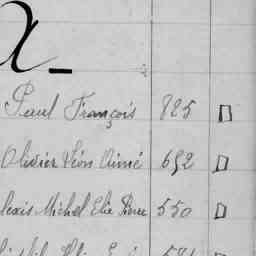 X
Paul François 825
Olivier Léon Aimé 692
lexis Michel Elie Pierre 550